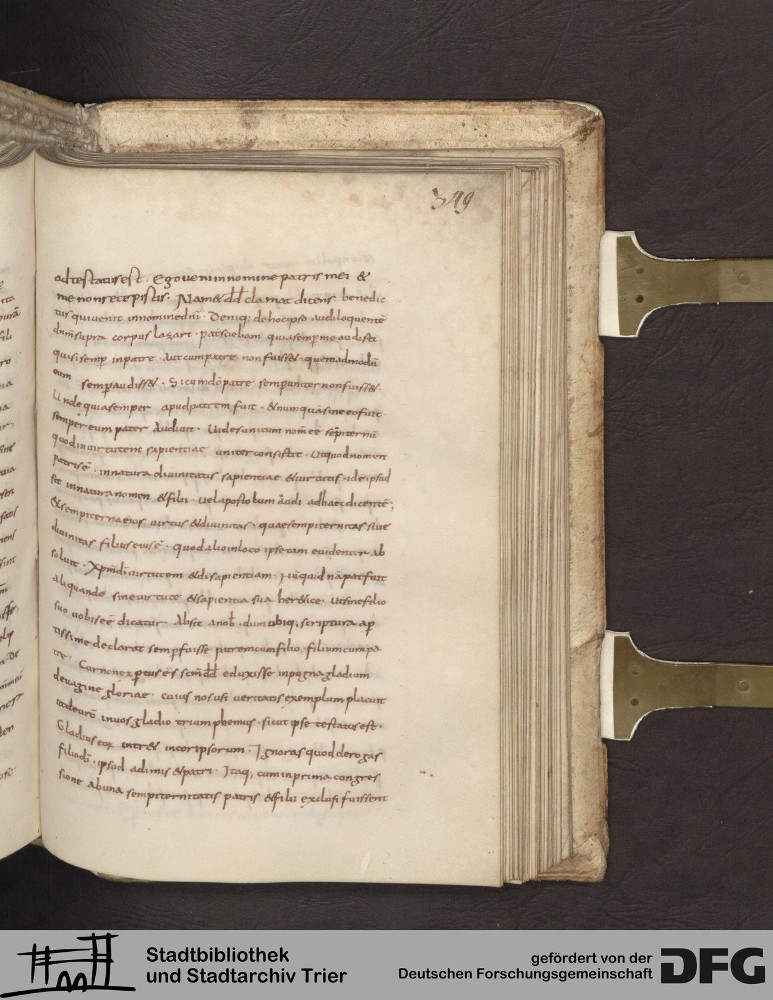 349
adtestatus est . Ego veni in nomine patris mei &
me non recepistis . Nam & dd̄ clamat dicens benedic
tus qui venit in nomine dn̄i . Deniq; de hoc ipso audi loquentē
dnm̄ supra corpus lazari . pat sciebam quia semp me audisti
qui si semp in patre . aut cum patre non fuisse& quemadmodū
eum semp audisse& . Si cum dō patre semp uniter non fuisse& .
Unde quia semper apud patrem fuit . & numquā sine eo fuit
semper eum pater audivit . Vides unitum nom̄ ee sēpiternū
quod in virtutem sapientiae uniter consistit . Ut quod nomen
patris ē . in natura divinitatis sapientiae & virtutis . id & ipsud
sit in natura nomen & filii . vel apostolum audi adhaec dicentē ;
& sempiterna eius virtus & divinitas . quae sempiternitas sive
divinitas filius eius ē . quod alio in loco ipse tam evidenter ab
solvit . Xpm̄ dī virtutem & dī sapientiam . Nūquid nā pat fuit
aliquando sine virtute & sapientia sua her&ice . Ut sine filio
suo vobis eē dicatur . Absit a nob̄ . dum ubiq; scriptura ap
tissime declarat semp fuisse patrem cum filio . filium cum pa
tre . Cur non exptus es sc̄m dd̄ eduxisse in pugna gladium
de vagine gloriae . cuius nos usi veritatis exemplum placuit
ut de vr̄o in vos gladio triumphemus . sicut ipse testatus est .
Gladius eor̄ intr& in cor ipsorum . Ignoras quod derogas
filio dī . ipsud adimis & patri . Itaq; cum in prima congres
sione ab una sempiternitatis patris & filii exclusi fuissent
Stadtbibliothek
und Stadtarchiv Trier
gefördert von der
Deutschen Forschungsgemeinschaft
DFG